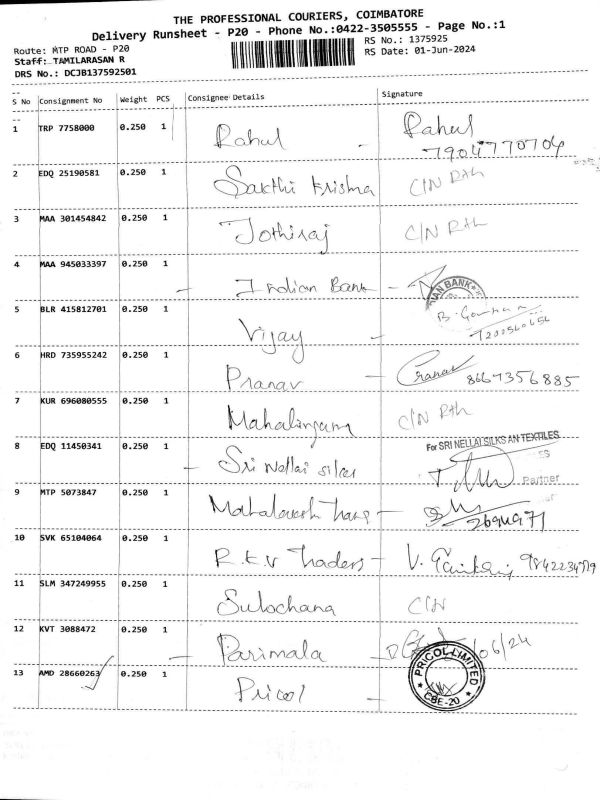 THE PROFESSIONAL COURIERS, COIMBATORE
Delivery Runsheet - P20 - Phone No.:0422-3505555 - Page No.:1
Route: MTP ROAD - P20
RS No.: 1375925
Staff: TAMILARASAN R
RS Date: 01-Jun-2024
DRS No.: DCJB137592501
S No Consignment No Weight PCS Consignee Details Signature
1 TRP 7758000 0.250 1 Rahul - Rahul
7904770704
2 EDQ 25190581 0.250 1 Sakthi Krishna C/N Rth
3 MAA 301454842 0.250 1 Jothiraj C/N Rth
4 MAA 945033397 0.250 1 - Indian Bank -
5 BLR 415812701 0.250 1 Vijay
7200560656
6 HRD 735955242 0.250 1 Pranav - Pranav 8667356885
7 KUR 696080555 0.250 1 Mahalingam C/N Rth
8 EDQ 11450341 0.250 1 - Sri Nellai silks
For SRI NELLAI SILKS AN TEXTILES
Partner
9 MTP 5073847 0.250 1 -
10 SVK 65104064 0.250 1 R.K.V Traders - V.
11 SLM 347249955 0.250 1 Sulochana C/N
12 KVT 3088472 0.250 1 - Parimala - /06/24
13 AMD 28660263 0.250 1 Pricol -
PRICOL LIMITED
CBE-20